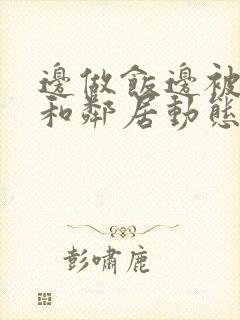 邊做飯邊被
和鄰居動態
彭嘯鹿